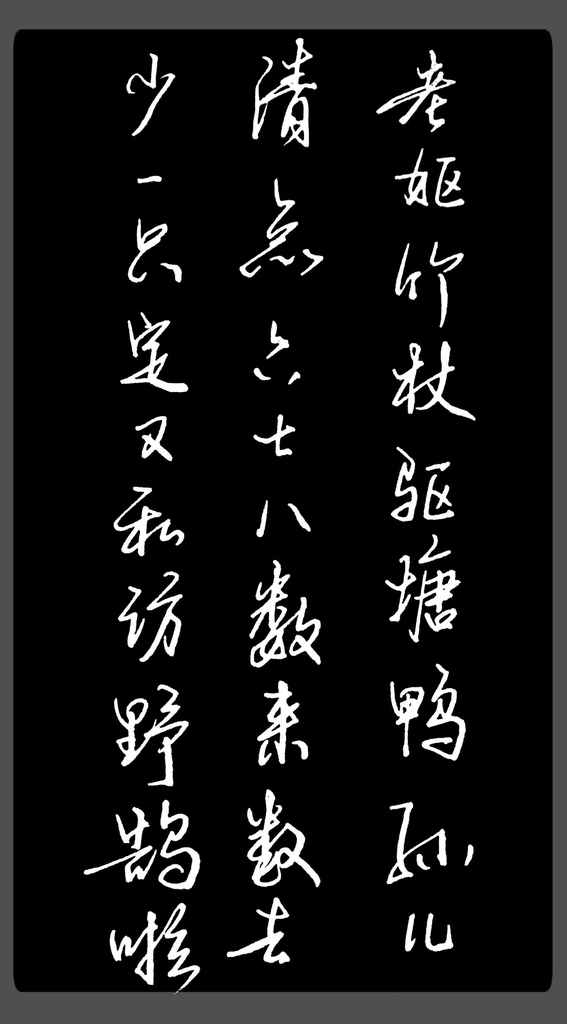 老妪竹杖驱塘鸭孙儿
清点六七八数来数去
少一只定又私访野鹄啦